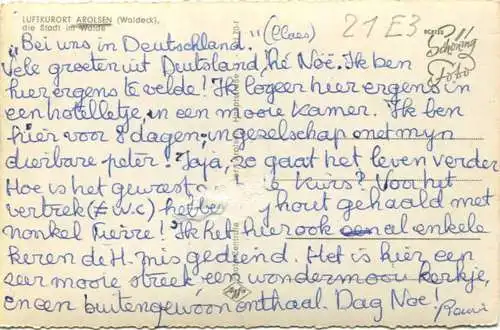 LUFTKURORT AROLSEN (Waldeck),
die Stadt im Walde
21 E3
Schöning
Foto
„Bei uns in Deutschland." (Claes)
Vele groeten uit Duitsland, hé Noë. Ik ben
hier ergens te velde! Ik logeer hier ergens in
een hotelletje, in een mooie kamer. Ik ben
hier voor 8 dagen, in gezelschap met myn
dierbare peter! Jaja, zo gaat het leven verder
Hoe is het geweest kurs? Voor het
vertrek (≠ w.c) hout gehaald met
nonkel Pierre! Ik heb hier ook al enkele
keren de H. mis gediend. Het is hier een
zeer mooie streek, een wondermooi kerkje,
en een buitengewoon onthaal. Dag Noë!